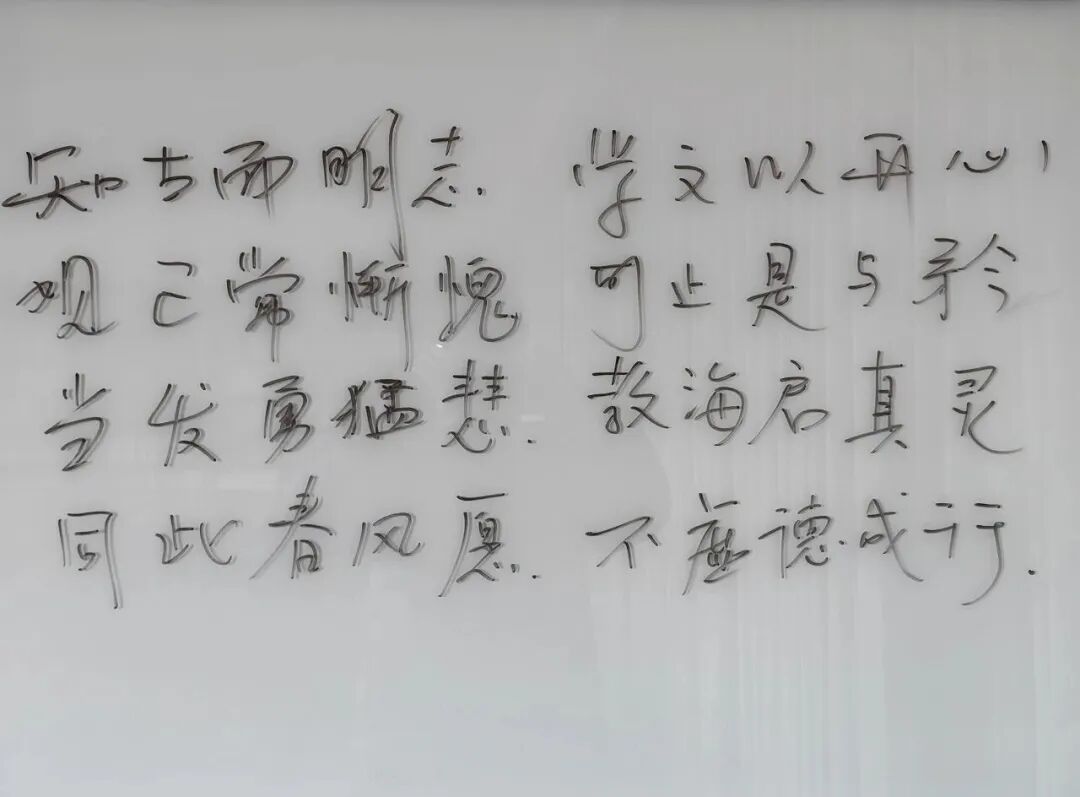 知古而明志 学文以再心
观己常惭愧 可止是与矜
当发勇猛慧 教海启真灵
同此春风愿 不虚德成行